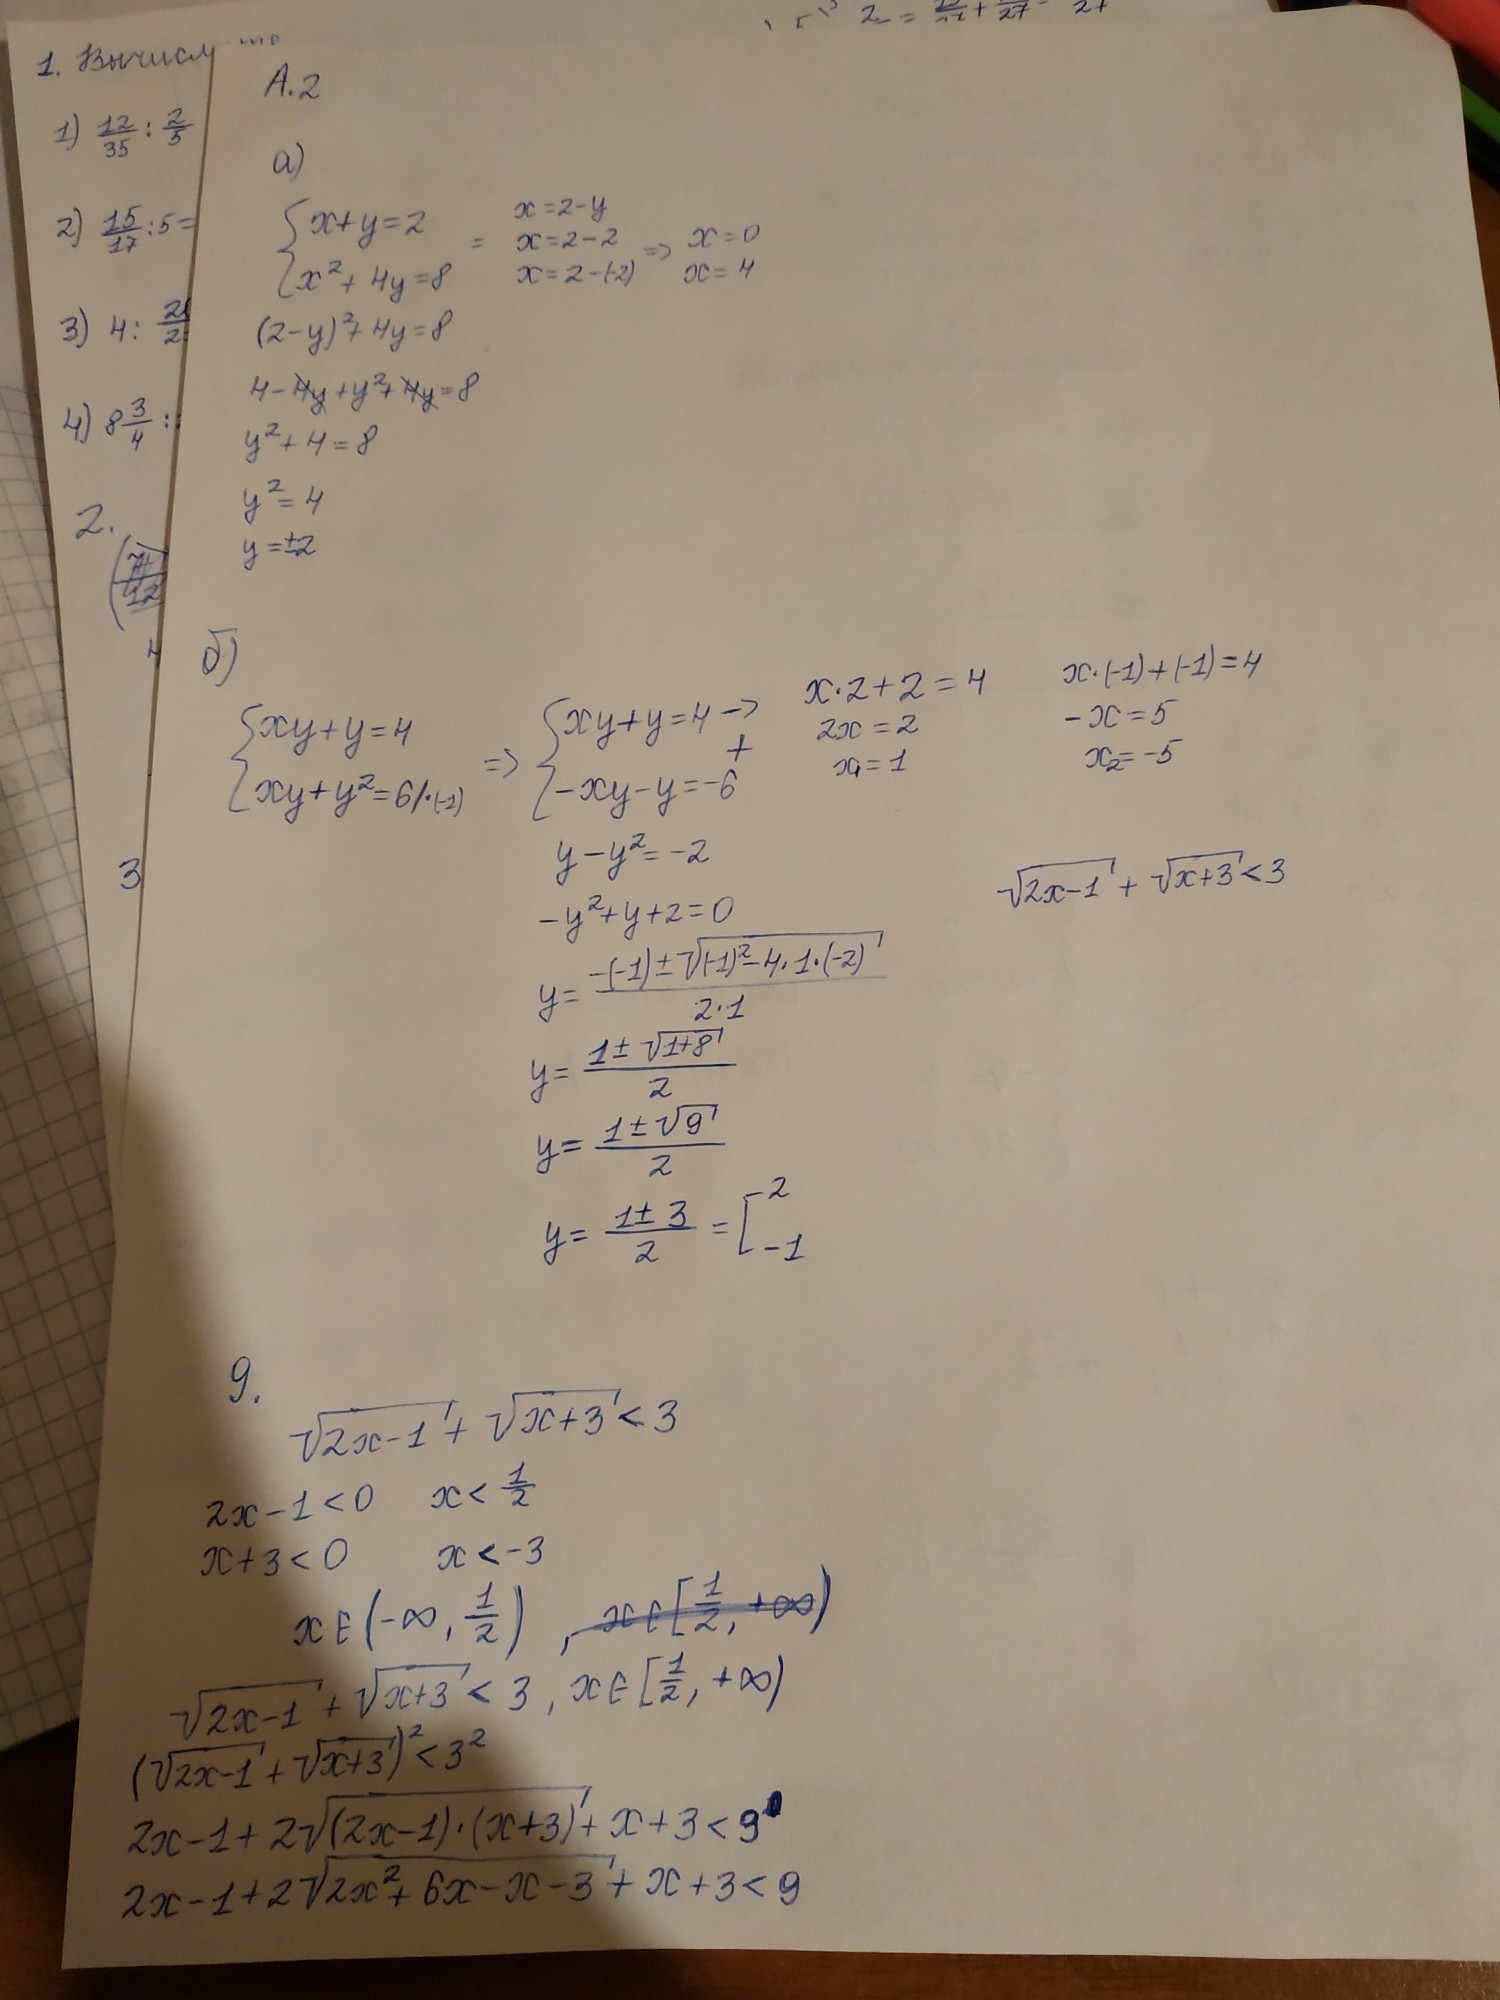 2 =
1. Вычисл
1) 12/35 : 2/5
2) 15/17 : 5 =
3) 4 :
4) 8 3/4 :
2.
3
A.2
а)
{ x+y=2
x²+4y=8
= x=2-y
x=2-2
x=2-(-2)
=> x=0
x=4
(2-y)²+4y=8
4-4y+y²+4y=8
y²+4=8
y²=4
y=±2
б)
{ xy+y=4
xy+y²=6 /·(-1)
=> { xy+y=4 ->
+
-xy-y=-6
x·2+2=4
2x=2
x₁=1
x·(-1)+(-1)=4
-x=5
x₂=-5
y-y²=-2
-y²+y+2=0
y= (-(-1)±√((-1)²-4·1·(-2)))/(2·1)
y= (1±√(1+8))/2
y= (1±√9)/2
y= (1±3)/2 = [ 2
-1
√(2x-1) + √(x+3) < 3
9.
√(2x-1) + √(x+3) < 3
2x-1<0 x<1/2
x+3<0 x<-3
x∈(-∞, 1/2), x∈[1/2, +∞)
√(2x-1) + √(x+3) < 3, x∈[1/2, +∞)
(√(2x-1) + √(x+3))² < 3²
2x-1+2√((2x-1)·(x+3)) + x+3<9
2x-1+2√(2x²+6x-x-3) + x+3<9